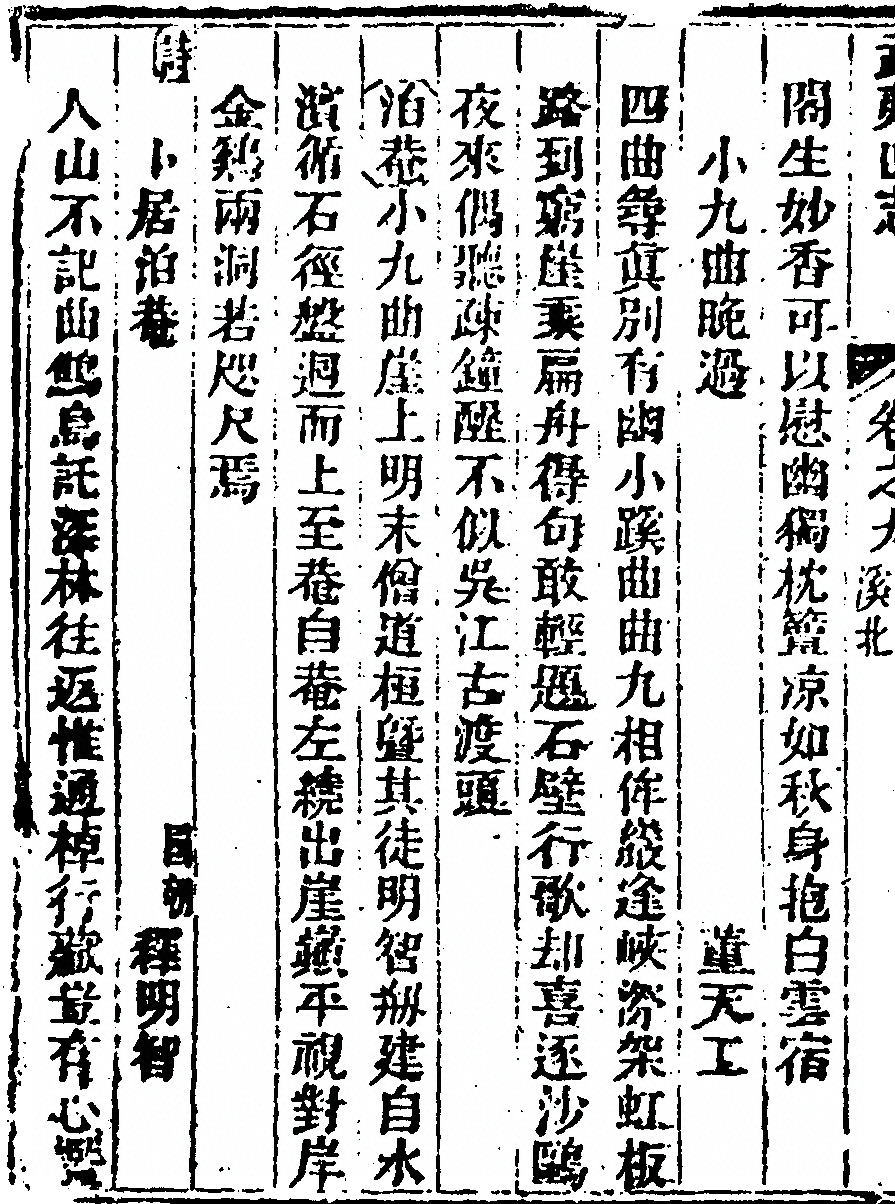 武夷山志 卷之九 溪北
閣生妙香可以慰幽獨枕簟凉如秋身抱白雲宿
小九曲晚過 董天工
四曲尋眞別有幽小蹊曲曲九相侔縱途峽滂架虹板
路到窮崖乗扁舟得句敢輕題石壁行歌却喜逐沙鷗
夜來偶聽疎鐘醒不似吳江古渡頭
泊菴小九曲崖上明末僧道桓曁其徒明智剏建自水
濵循石徑盤迴而上至菴自菴左繞出崖巔平視對岸
金鷄兩洞若咫尺焉
詩
卜居泊菴 國朝 釋明智
人山不記曲鷦鳥託深林往返惟通棹行藏豈有心